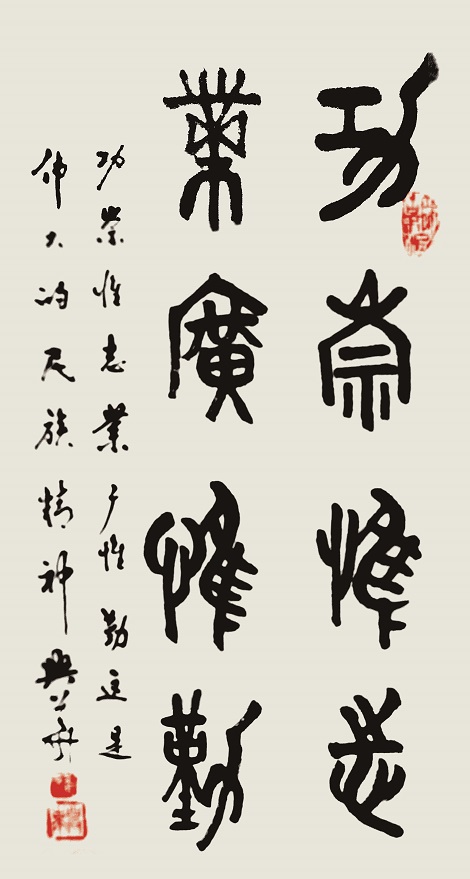 功崇惟志
業廣惟勤
功崇惟志業广惟勤这是
伟大的民族精神